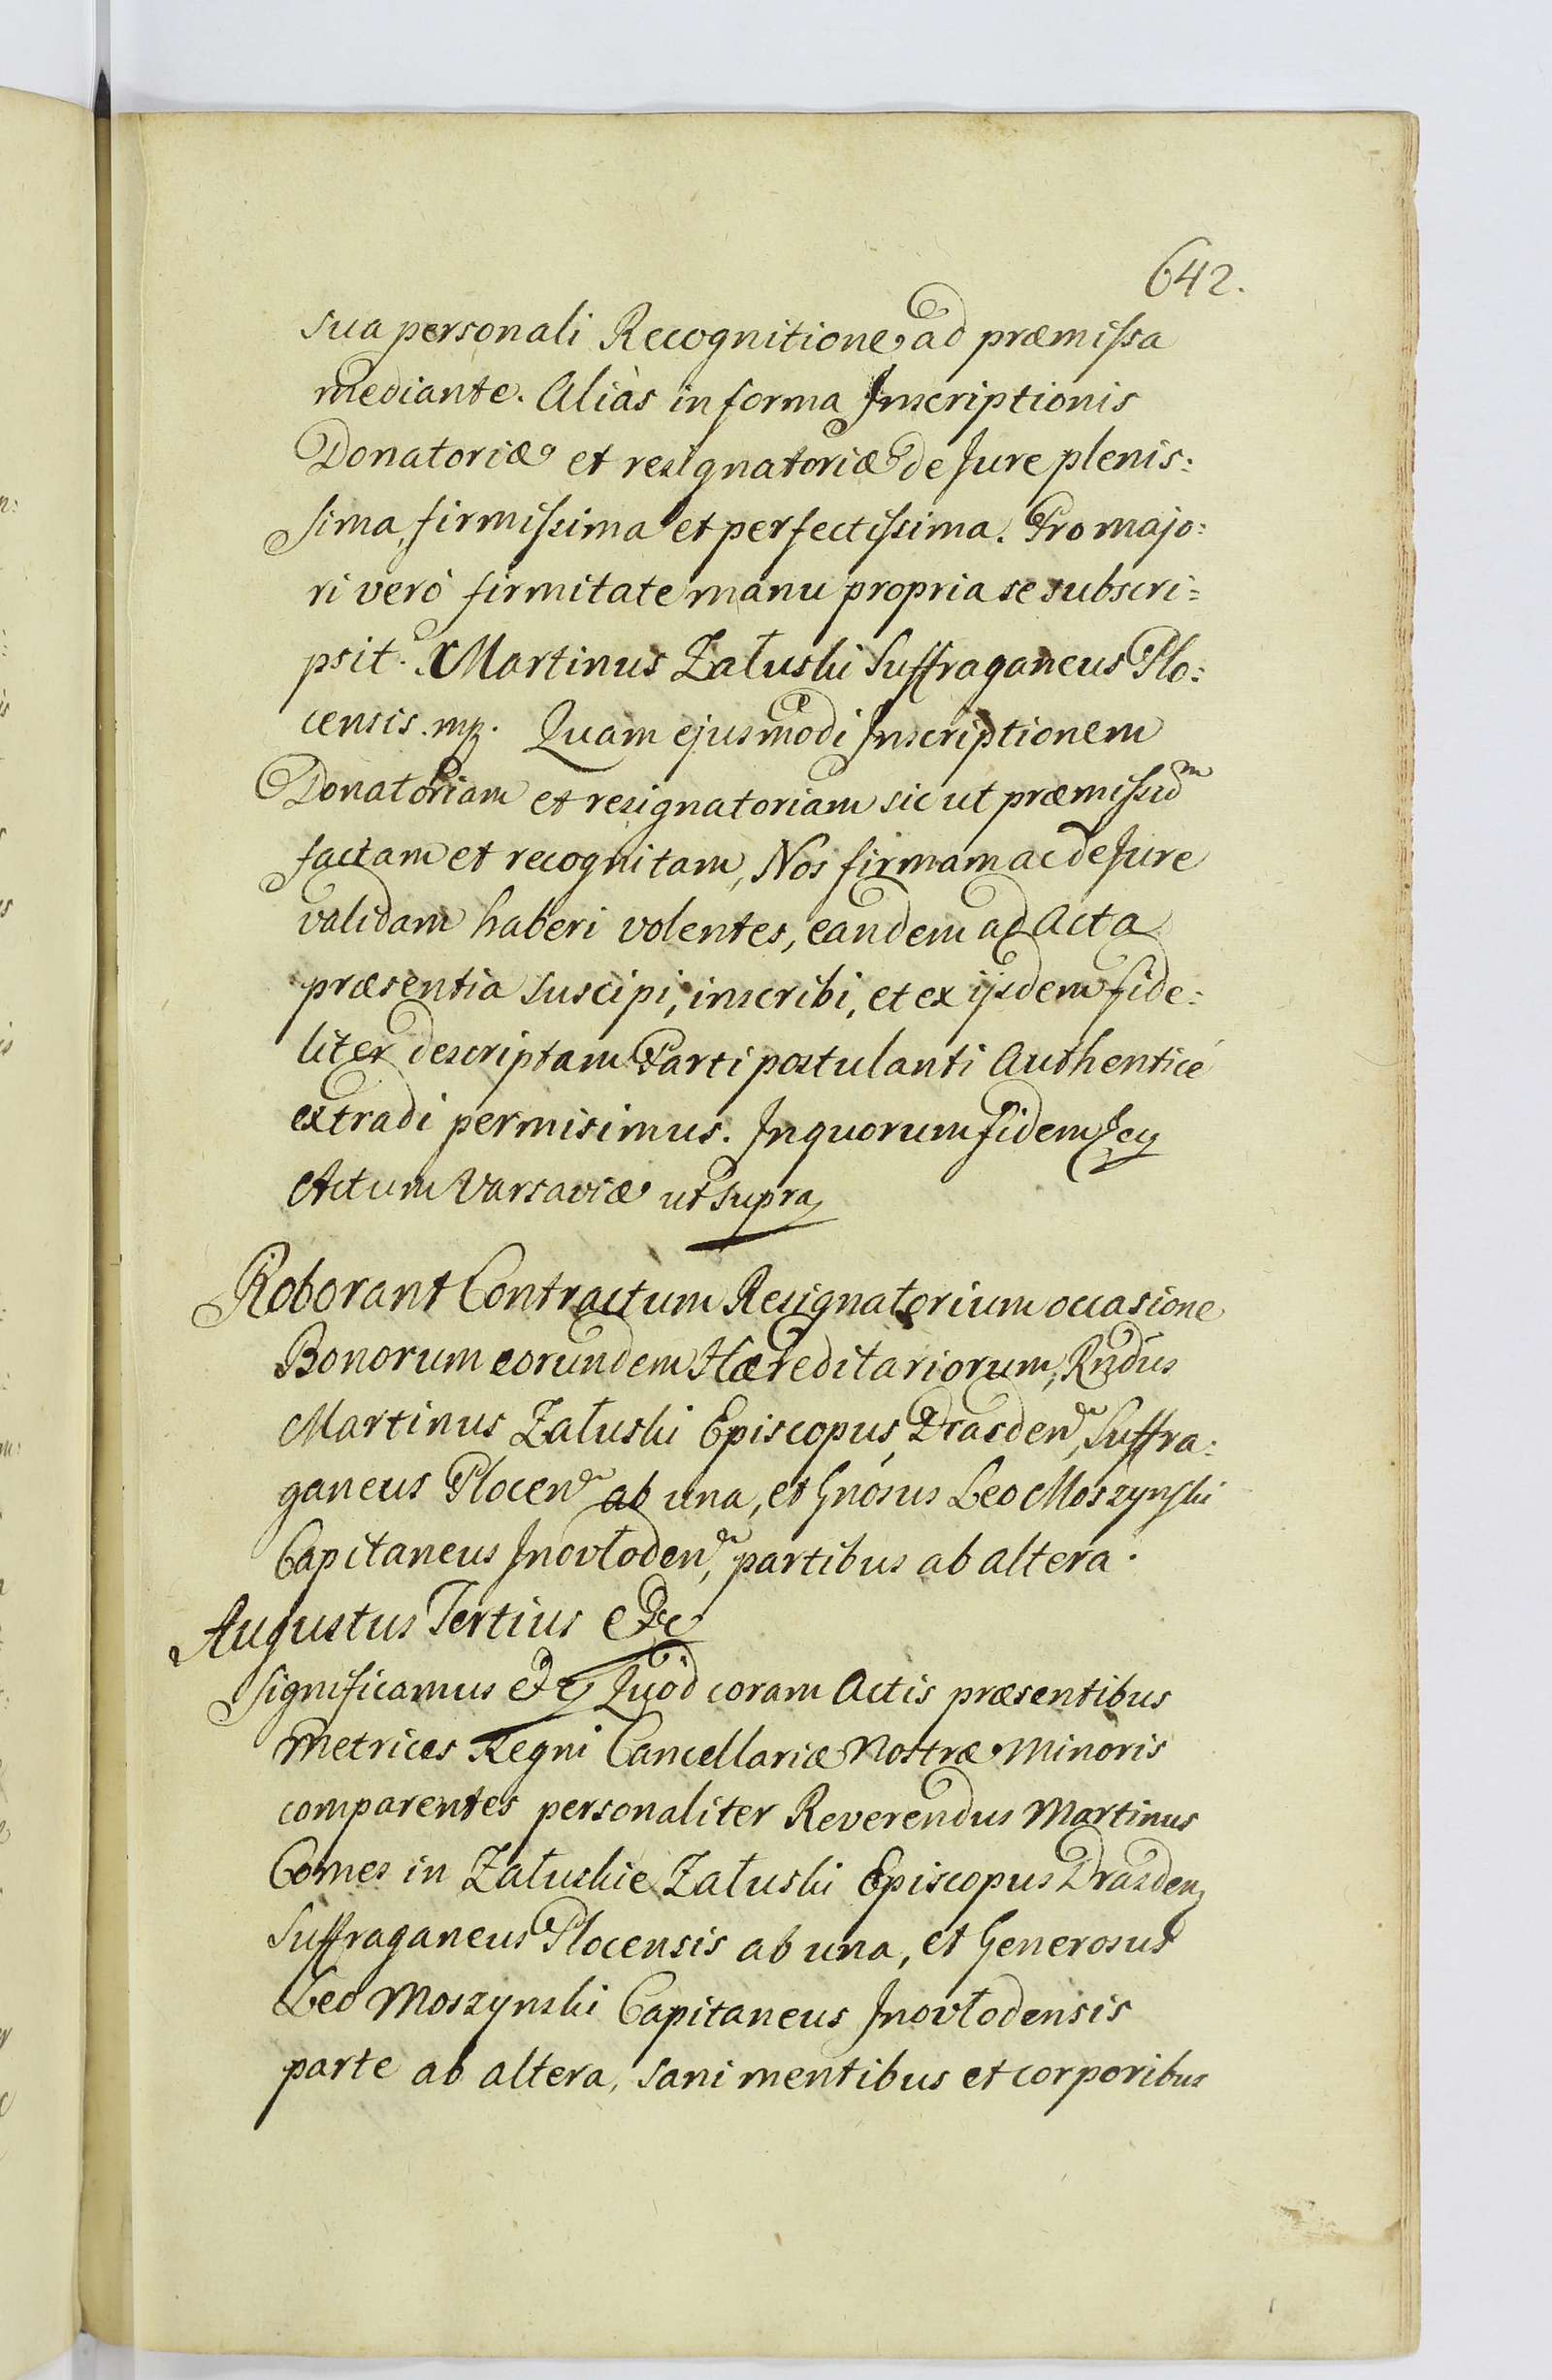 642.
sua personali Recognitione ad præmissa
mediante. Aliàs in forma Inscriptionis
Donatoriæ et resignatoriæ de Jure plenis:
sima, firmissima et perfectissima. Pro majo:
ri verò firmitate manu propria se subscri=
psit. Martinus Załuski Suffraganeus Plo:
censis. mp. Quam ejusmodi Inscriptionem
Donatoriam et resignatoriam sic ut præmissum
factam et recognitam, Nos firmam ac de Jure
validam haberi volentes, eandem ad Acta
præsentia suscipi, inscribi, et ex ijsdem fide:
liter descriptam Parti postulanti Authenticè
extradi permisimus. In quorum fidem &c
Actum Varsaviæ ut supra
Roborant Contractum Resignatorium occasione
Bonorum eorundem Hæreditariorum, Rndus
Martinus Załuski Episcopus Drasden, Suffra:
ganeus Plocen ab una, et Gnosus Leo Moszynski
Capitaneus Inovłoden, partibus ab altera.
Augustus Tertius &c
Significamus &c Quod coram Actis præsentibus
Metrices Regni Cancellariæ Nostræ Minoris
comparentes personaliter Reverendus Martinus
Comes in Załuskie Załuski Episcopus Drasden
Suffraganeus Plocensis ab una, et Generosus
Leo Moszynski Capitaneus Inovłodensis
parte ab altera, sani mentibus et corporibus